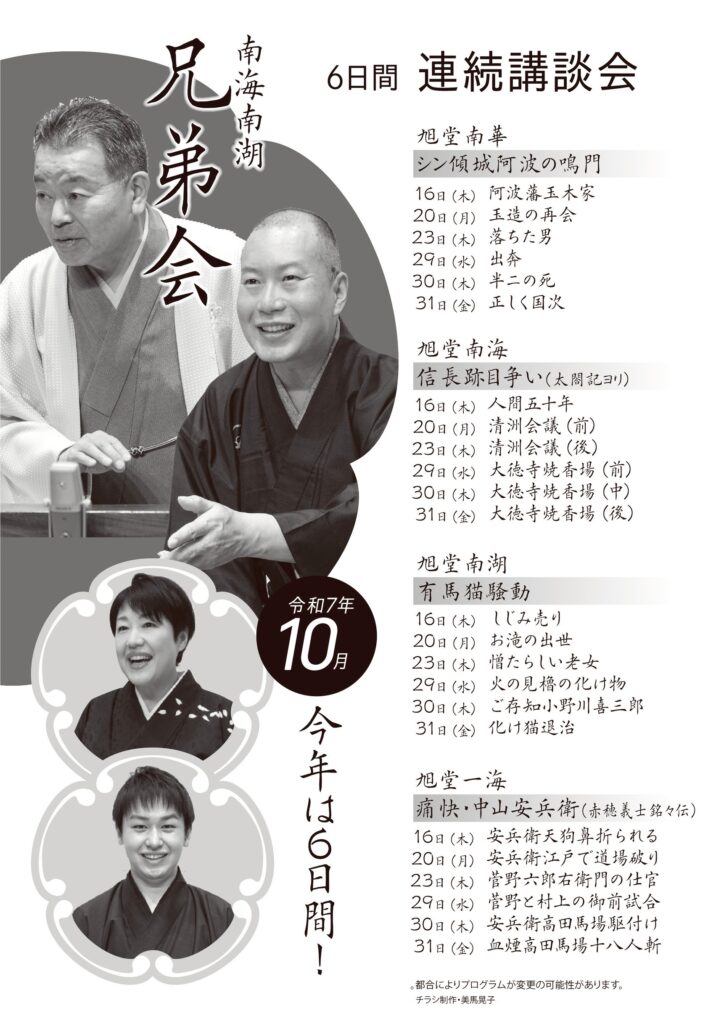 南海南湖
兄弟会
6日間 連続講談会
旭堂南華
シン傾城阿波の鳴門
16日（木） 阿波藩玉木家
20日（月） 玉造の再会
23日（木） 落ちた男
29日（水） 出奔
30日（木） 半二の死
31日（金） 正しく国次
旭堂南海
信長跡目争い（太閤記ヨリ）
16日（木） 人間五十年
20日（月） 清洲会議（前）
23日（木） 清洲会議（後）
29日（水） 大徳寺焼香場（前）
30日（木） 大徳寺焼香場（中）
31日（金） 大徳寺焼香場（後）
旭堂南湖
有馬猫騒動
16日（木） しじみ売り
20日（月） お滝の出世
23日（木） 憎たらしい老女
29日（水） 火の見櫓の化け物
30日（木） ご存知小野川喜三郎
31日（金） 化け猫退治
旭堂一海
痛快・中山安兵衛（赤穂義士銘々伝）
16日（木） 安兵衛天狗鼻折られる
20日（月） 安兵衛江戸で道場破り
23日（木） 菅野六郎右衛門の仕官
29日（水） 菅野と村上の御前試合
30日（木） 安兵衛高田馬場駆付け
31日（金） 血煙高田馬場十八人斬
令和7年
10月
今年は6日間！
。都合によりプログラムが変更の可能性があります。
チラシ制作・美馬晃子